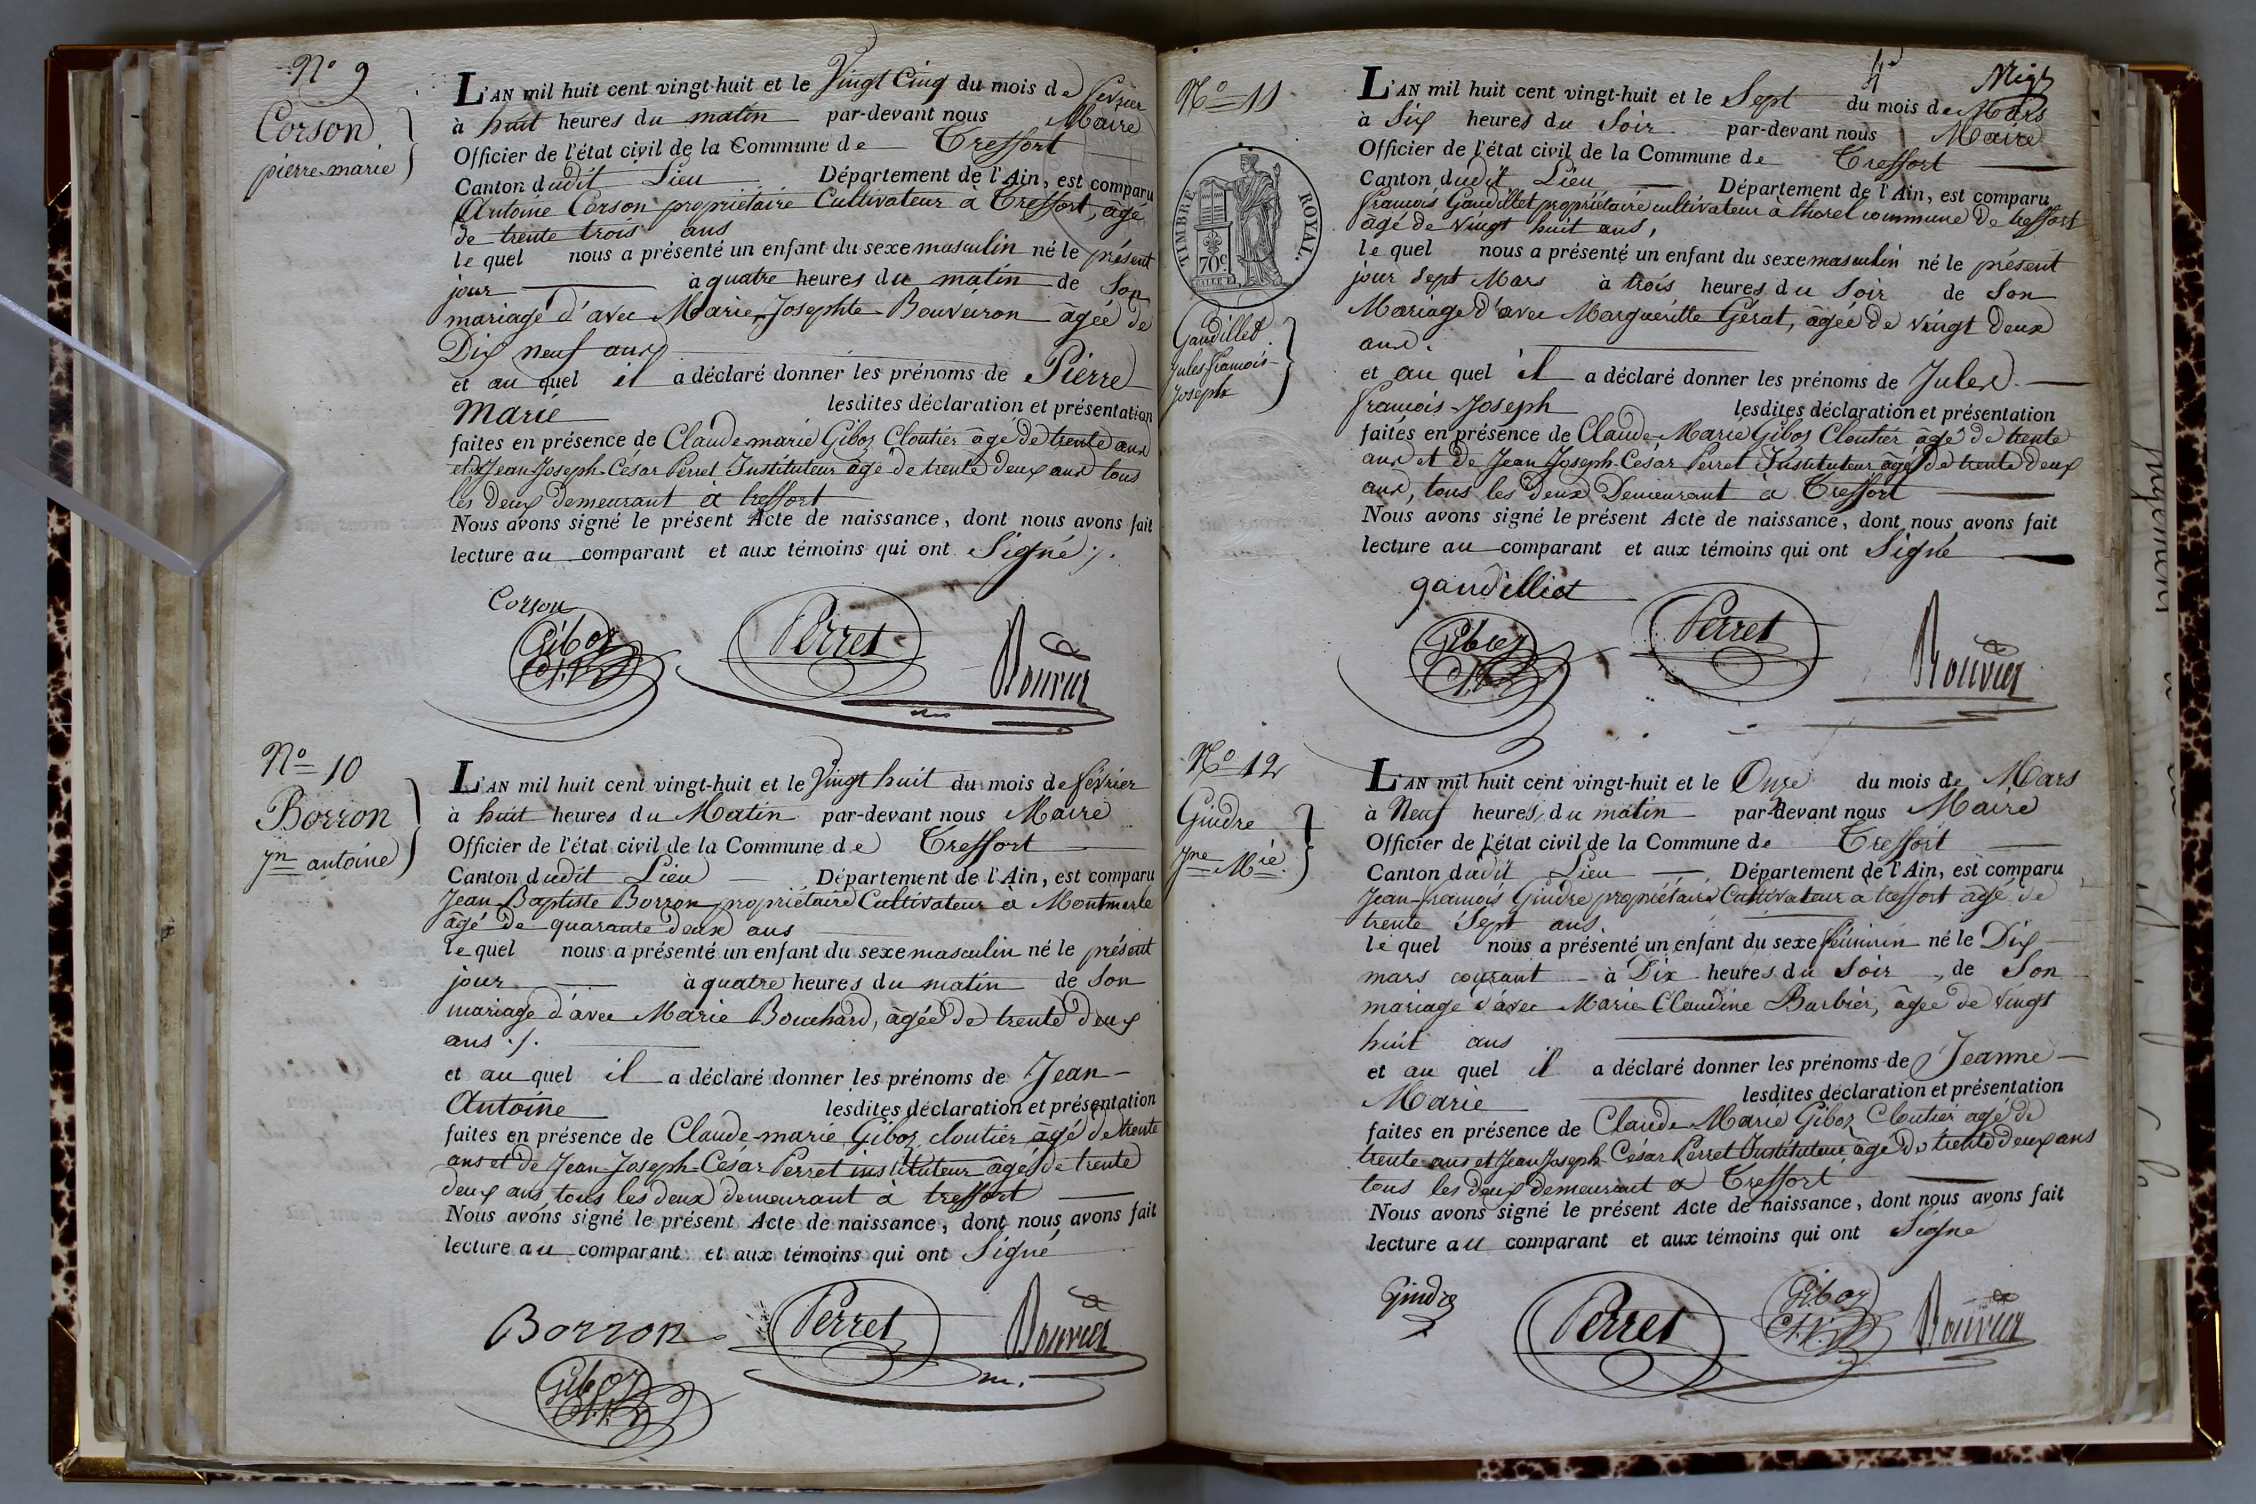 N.º 9
Corson
pierre-marie
L'AN mil huit cent vingt-huit et le Vingt Cinq du mois de février
à huit heures du matin par-devant nous Maire
Officier de l'état civil de la Commune de Treffort
Canton dudit Lieu Département de l'Ain, est comparu
Antoine Corson propriétaire Cultivateur à Treffort, âgé
de trente trois ans
le quel nous a présenté un enfant du sexe masculin né le présent
jour à quatre heures du matin de Son
mariage d'avec Marie-Josephte Bouveiron âgée de
Dix neuf ans
et au quel il a déclaré donner les prénoms de Pierre
Marie lesdites déclaration et présentation
faites en présence de Claude-marie Giboz Cloutier âgé de trente ans
et Jean-Joseph-César Perret Instituteur âgé de trente deux ans tous
les deux demeurant à treffort
Nous avons signé le présent Acte de naissance, dont nous avons fait
lecture au comparant et aux témoins qui ont Signé ./.
Corson
Giboz
Perret
Bouvier
N.º 10
Borron
Jn antoine
L'AN mil huit cent vingt-huit et le Vingt huit du mois de février
à huit heures du Matin par-devant nous Maire
Officier de l'état civil de la Commune de Treffort
Canton dudit Lieu Département de l'Ain, est comparu
Jean-Baptiste Borron propriétaire Cultivateur à Montmerle
âgé de quarante deux ans
le quel nous a présenté un enfant du sexe masculin né le présent
jour à quatre heures du matin de Son
mariage d'avec Marie Bouchard, âgée de trente deux
ans ./.
et au quel il a déclaré donner les prénoms de Jean-
Antoine lesdites déclaration et présentation
faites en présence de Claude-marie Giboz cloutier âgé de trente
ans et de Jean-Joseph-César Perret instituteur âgé de trente
deux ans, tous les deux demeurant à treffort
Nous avons signé le présent Acte de naissance, dont nous avons fait
lecture au comparant et aux témoins qui ont Signé
Borron
Perret
Bouvier
Giboz
N.º 11
TIMBRE ROYAL.
70c
Gaudillet
Jules françois-
Joseph
L'AN mil huit cent vingt-huit et le Sept du mois de Mars
à Six heures du Soir par-devant nous Maire
Officier de l'état civil de la Commune de Treffort
Canton dudit Lieu Département de l'Ain, est comparu
françois Gaudillet propriétaire cultivateur à thorel commune de treffort
âgé de vingt huit ans,
le quel nous a présenté un enfant du sexe masculin né le présent
jour Sept Mars à trois heures du Soir de Son
Mariage d'avec Marguéritte Gérat, âgée de vingt deux
ans.
et au quel il a déclaré donner les prénoms de Jules
françois-Joseph lesdites déclaration et présentation
faites en présence de Claude-Marie Giboz Cloutier âgé de trente
ans et de Jean Joseph-César Perret Instituteur âgé de trente deux
ans, tous les deux Demeurant à Treffort
Nous avons signé le présent Acte de naissance, dont nous avons fait
lecture au comparant et aux témoins qui ont Signé
gaudilliet
Giboz
Perret
Bouvier
N.º 12
Gindre
Jne Mie.
L'AN mil huit cent vingt-huit et le Onze du mois de Mars
à Neuf heures du matin par-devant nous Maire
Officier de l'état civil de la Commune de Treffort
Canton dudit Lieu Département de l'Ain, est comparu
Jean-françois Gindre propriétaire Cultivateur à treffort âgé de
trente Sept ans
le quel nous a présenté un enfant du sexe féminin né le Dix
mars courant à Dix heures du Soir, de Son
mariage d'avec Marie Claudine Barbier, âgée de vingt
huit ans
et au quel il a déclaré donner les prénoms de Jeanne
Marie lesdites déclaration et présentation
faites en présence de Claude-Marie Giboz Cloutier agé de
trente ans et Jean Joseph César Perret Instituteur âgé de trente deux ans
tous les deux demeurant à Treffort
Nous avons signé le présent Acte de naissance, dont nous avons fait
lecture au comparant et aux témoins qui ont Signé
Gindre
Perret
Giboz
Bouvier